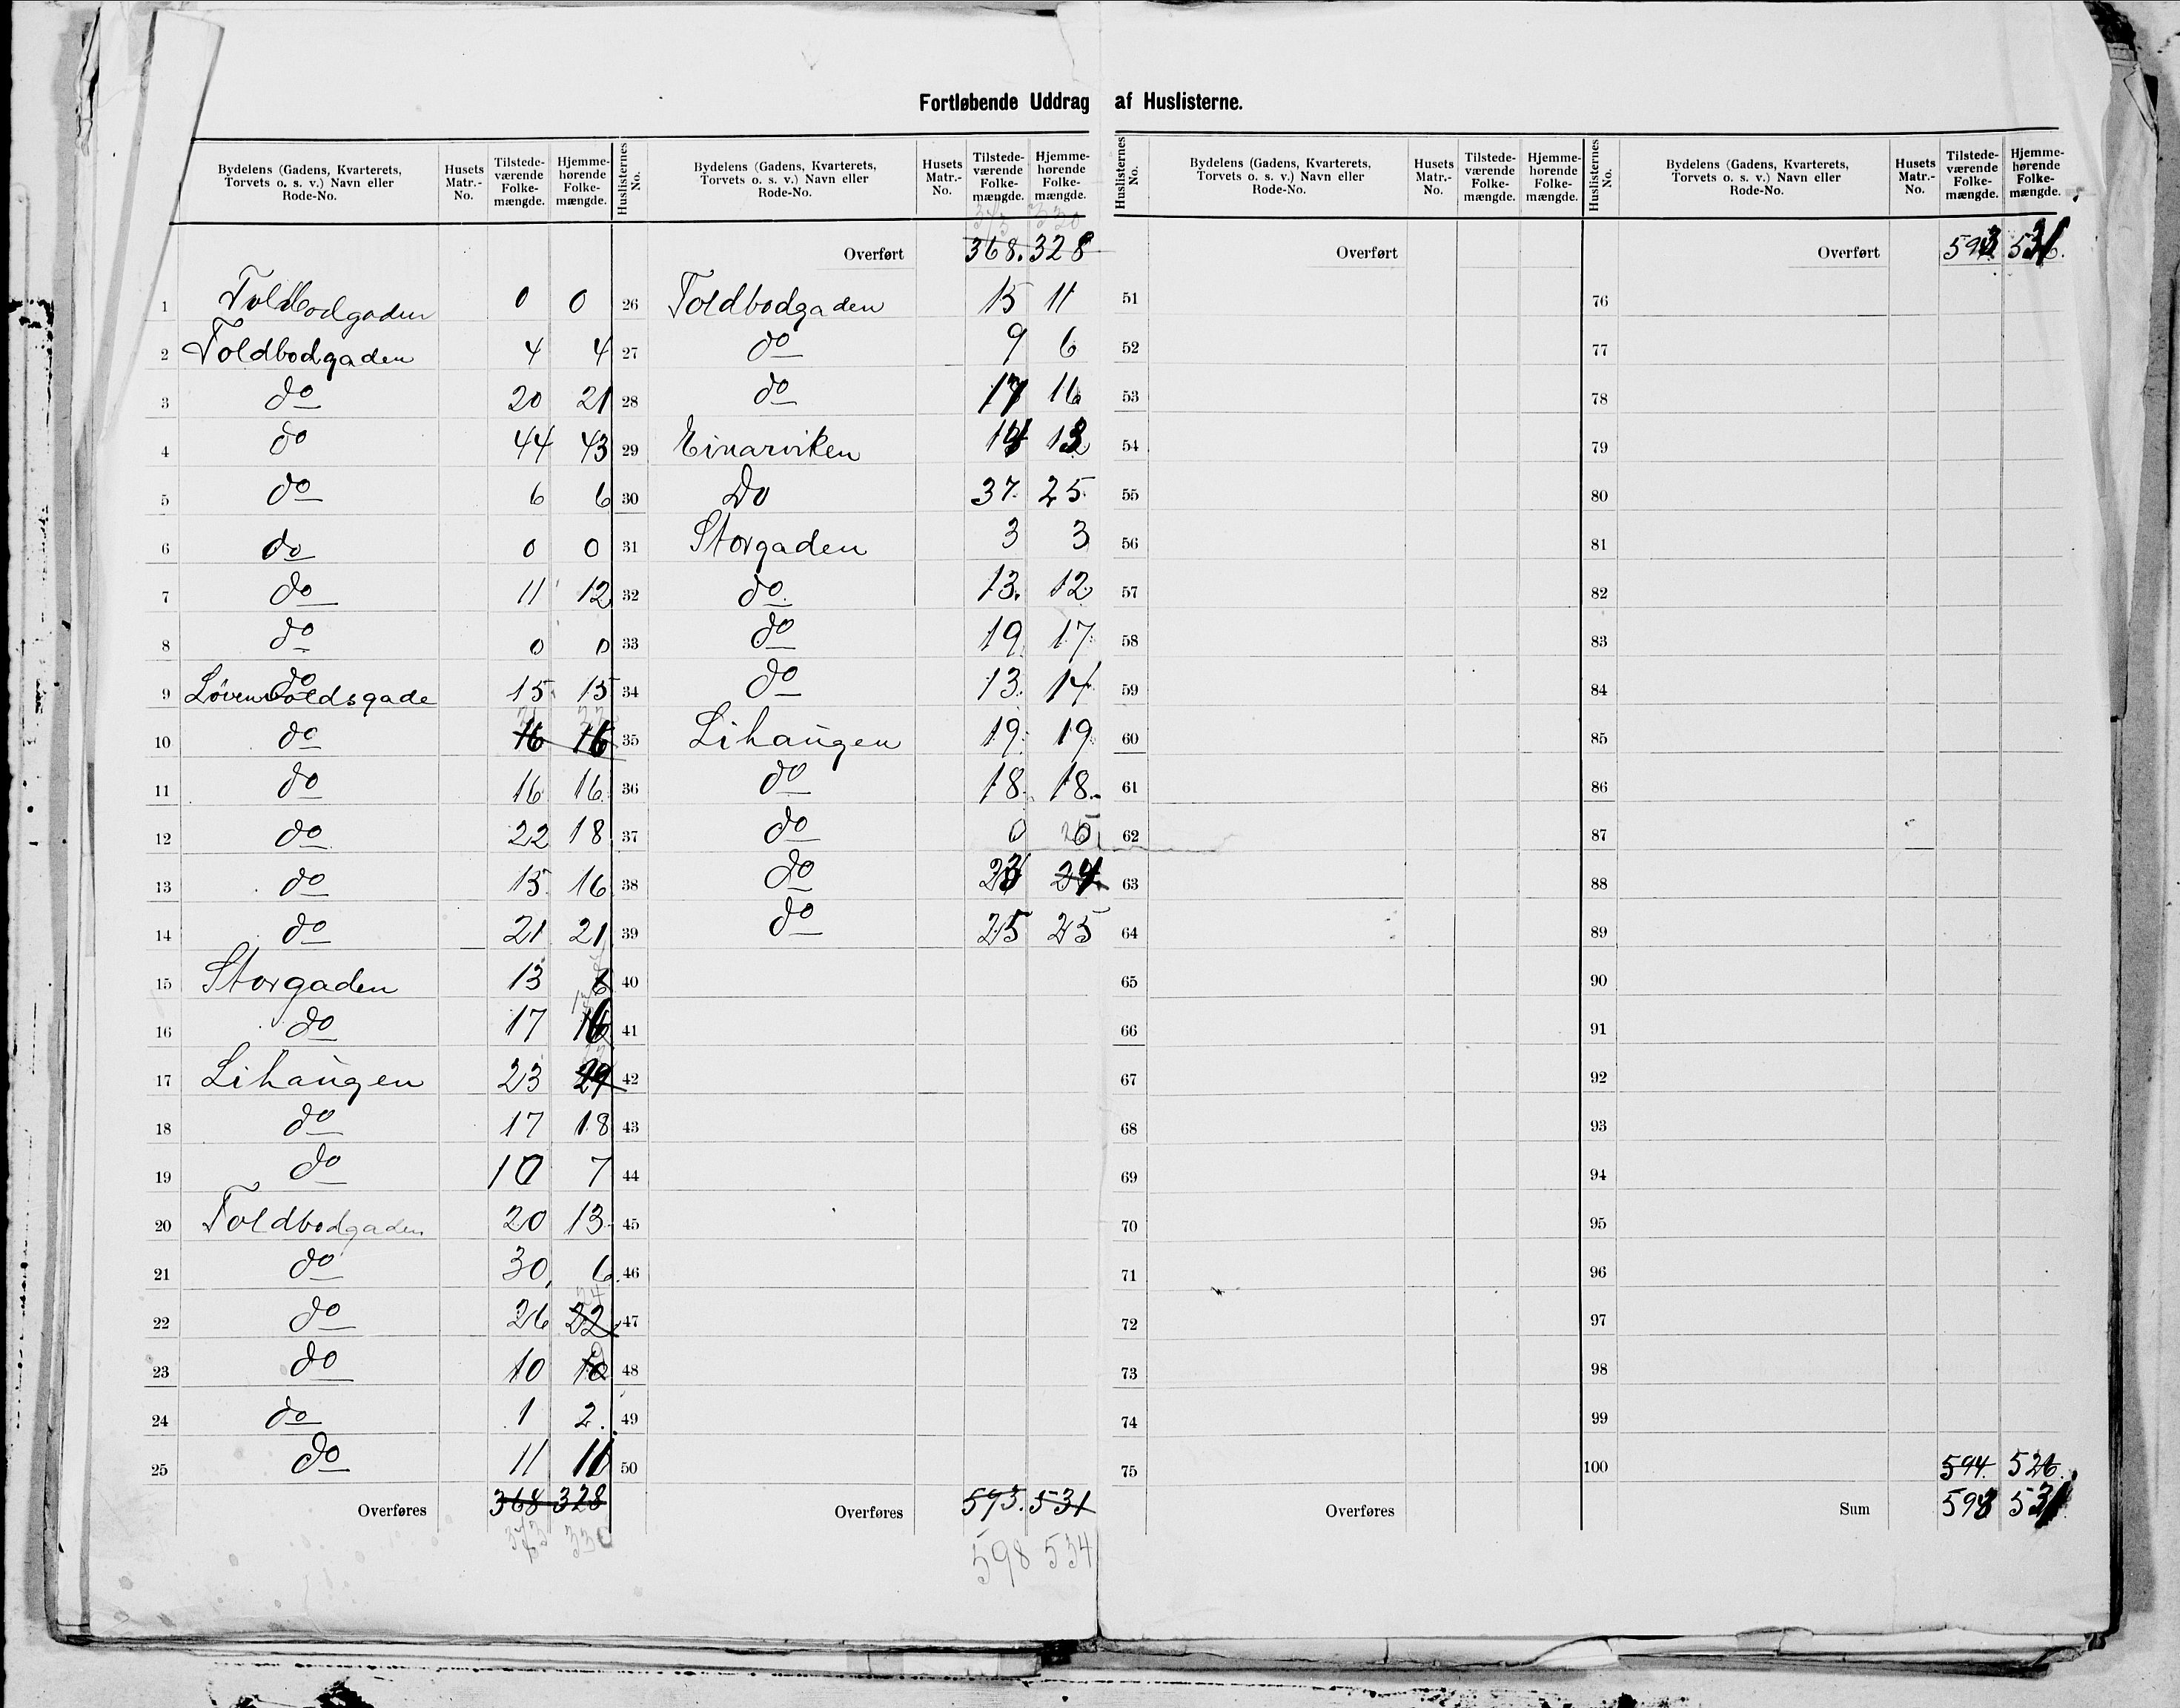 Fortløbende Uddrag af Huslisterne.
Bydelens (Gadens, Kvarterets, Torvets o. s. v.) Navn eller Rode-No. Husets Matr.-No. Tilstedeværende Folkemængde. Hjemmehørende Folkemængde.
Huslisternes No. Bydelens (Gadens, Kvarterets, Torvets o. s. v.) Navn eller Rode-No. Husets Matr.-No. Tilstedeværende Folkemængde. Hjemmehørende Folkemængde.
Huslisternes No. Bydelens (Gadens, Kvarterets, Torvets o. s. v.) Navn eller Rode-No. Husets Matr.-No. Tilstedeværende Folkemængde. Hjemmehørende Folkemængde.
Huslisternes No. Bydelens (Gadens, Kvarterets, Torvets o. s. v.) Navn eller Rode-No. Husets Matr.-No. Tilstedeværende Folkemængde. Hjemmehørende Folkemængde.
1 Toldbodgaden 0 0
2 Toldbodgaden 4 4
3 do 20 21
4 do 44 43
5 do 6 6
6 do 0 0
7 do 11 12
8 do 0 0
9 do Løvenvoldsgade 15 15
10 do 16 16
11 do 16 16
12 do 22 18
13 do 15 16
14 do 21 21
15 Storgaden 13
16 do 17 16
17 Lihaugen 23 29
18 do 17 18
19 do 10 7
20 Toldbodgaden 20 13
21 do 30 6
22 do 26 22 24
23 do 10 10
24 do 1 2
25 do 11 11
Overføres 368 328
373 330
373 330
Overført 368. 328
26 Toldbodgaden 15 11
27 do 9 6
28 do 17 16
29 Einarviken 14 13
30 Do 37. 25.
31 Storgaden 3 3
32 do. 13. 12
33 do 19 17
34 do 13. 14
35 Lihaugen 19 19
36 do 18 18
37 do 0 0
38 do 23 24
39 do 25 25
40
41
42
43
44
45
46
47
48
49
50
Overføres 593. 531
598 534
Overført
51
52
53
54
55
56
57
58
59
60
61
62
63
64
65
66
67
68
69
70
71
72
73
74
75
Overføres
Overført 593 531
76
77
78
79
80
81
82
83
84
85
86
87
88
89
90
91
92
93
94
95
96
97
98
99
100 594. 526.
Sum 593 531